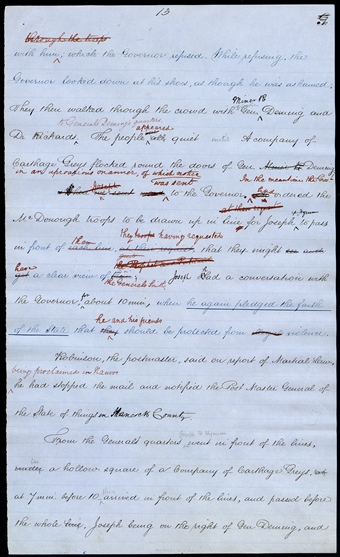 13
through the troops
with him, which the Governor refused. While refusing, the
Governor looked down at his shoes, as though he was ashamed.
They then walked through the crowd with Gen. Deming and
to General Deming's quarters
Dr Richards. The people appeared quiet until A company of
Carthage Greys flocked round the doors of Gen. Deming
in an uproarious manner, of which notice
was sent to the Governor. In the meantime the Gov.
ordered the
McDonough troops to be drawn up in line for Joseph to pass
in front of them they having requested that they might
have a clear view of the Generals Smith. Joseph had a conversation with
the Governor for about 10 min, when he again pledged the faith
of the State that he and his friends should be protected from violence.
Robinson, the postmaster, said on report of Martial Law
being proclaimed in Nauvoo
he had stopped the mail and notified the Post Master General of
the State of things in Hancock County.
From the General's quarters went in front of the lines,
in a hollow square of a Company of Carthage Greys.
at 7 min. before 10, arrived in front of the lines, and passed before
the whole Joseph being on the right of Gen Deming, and